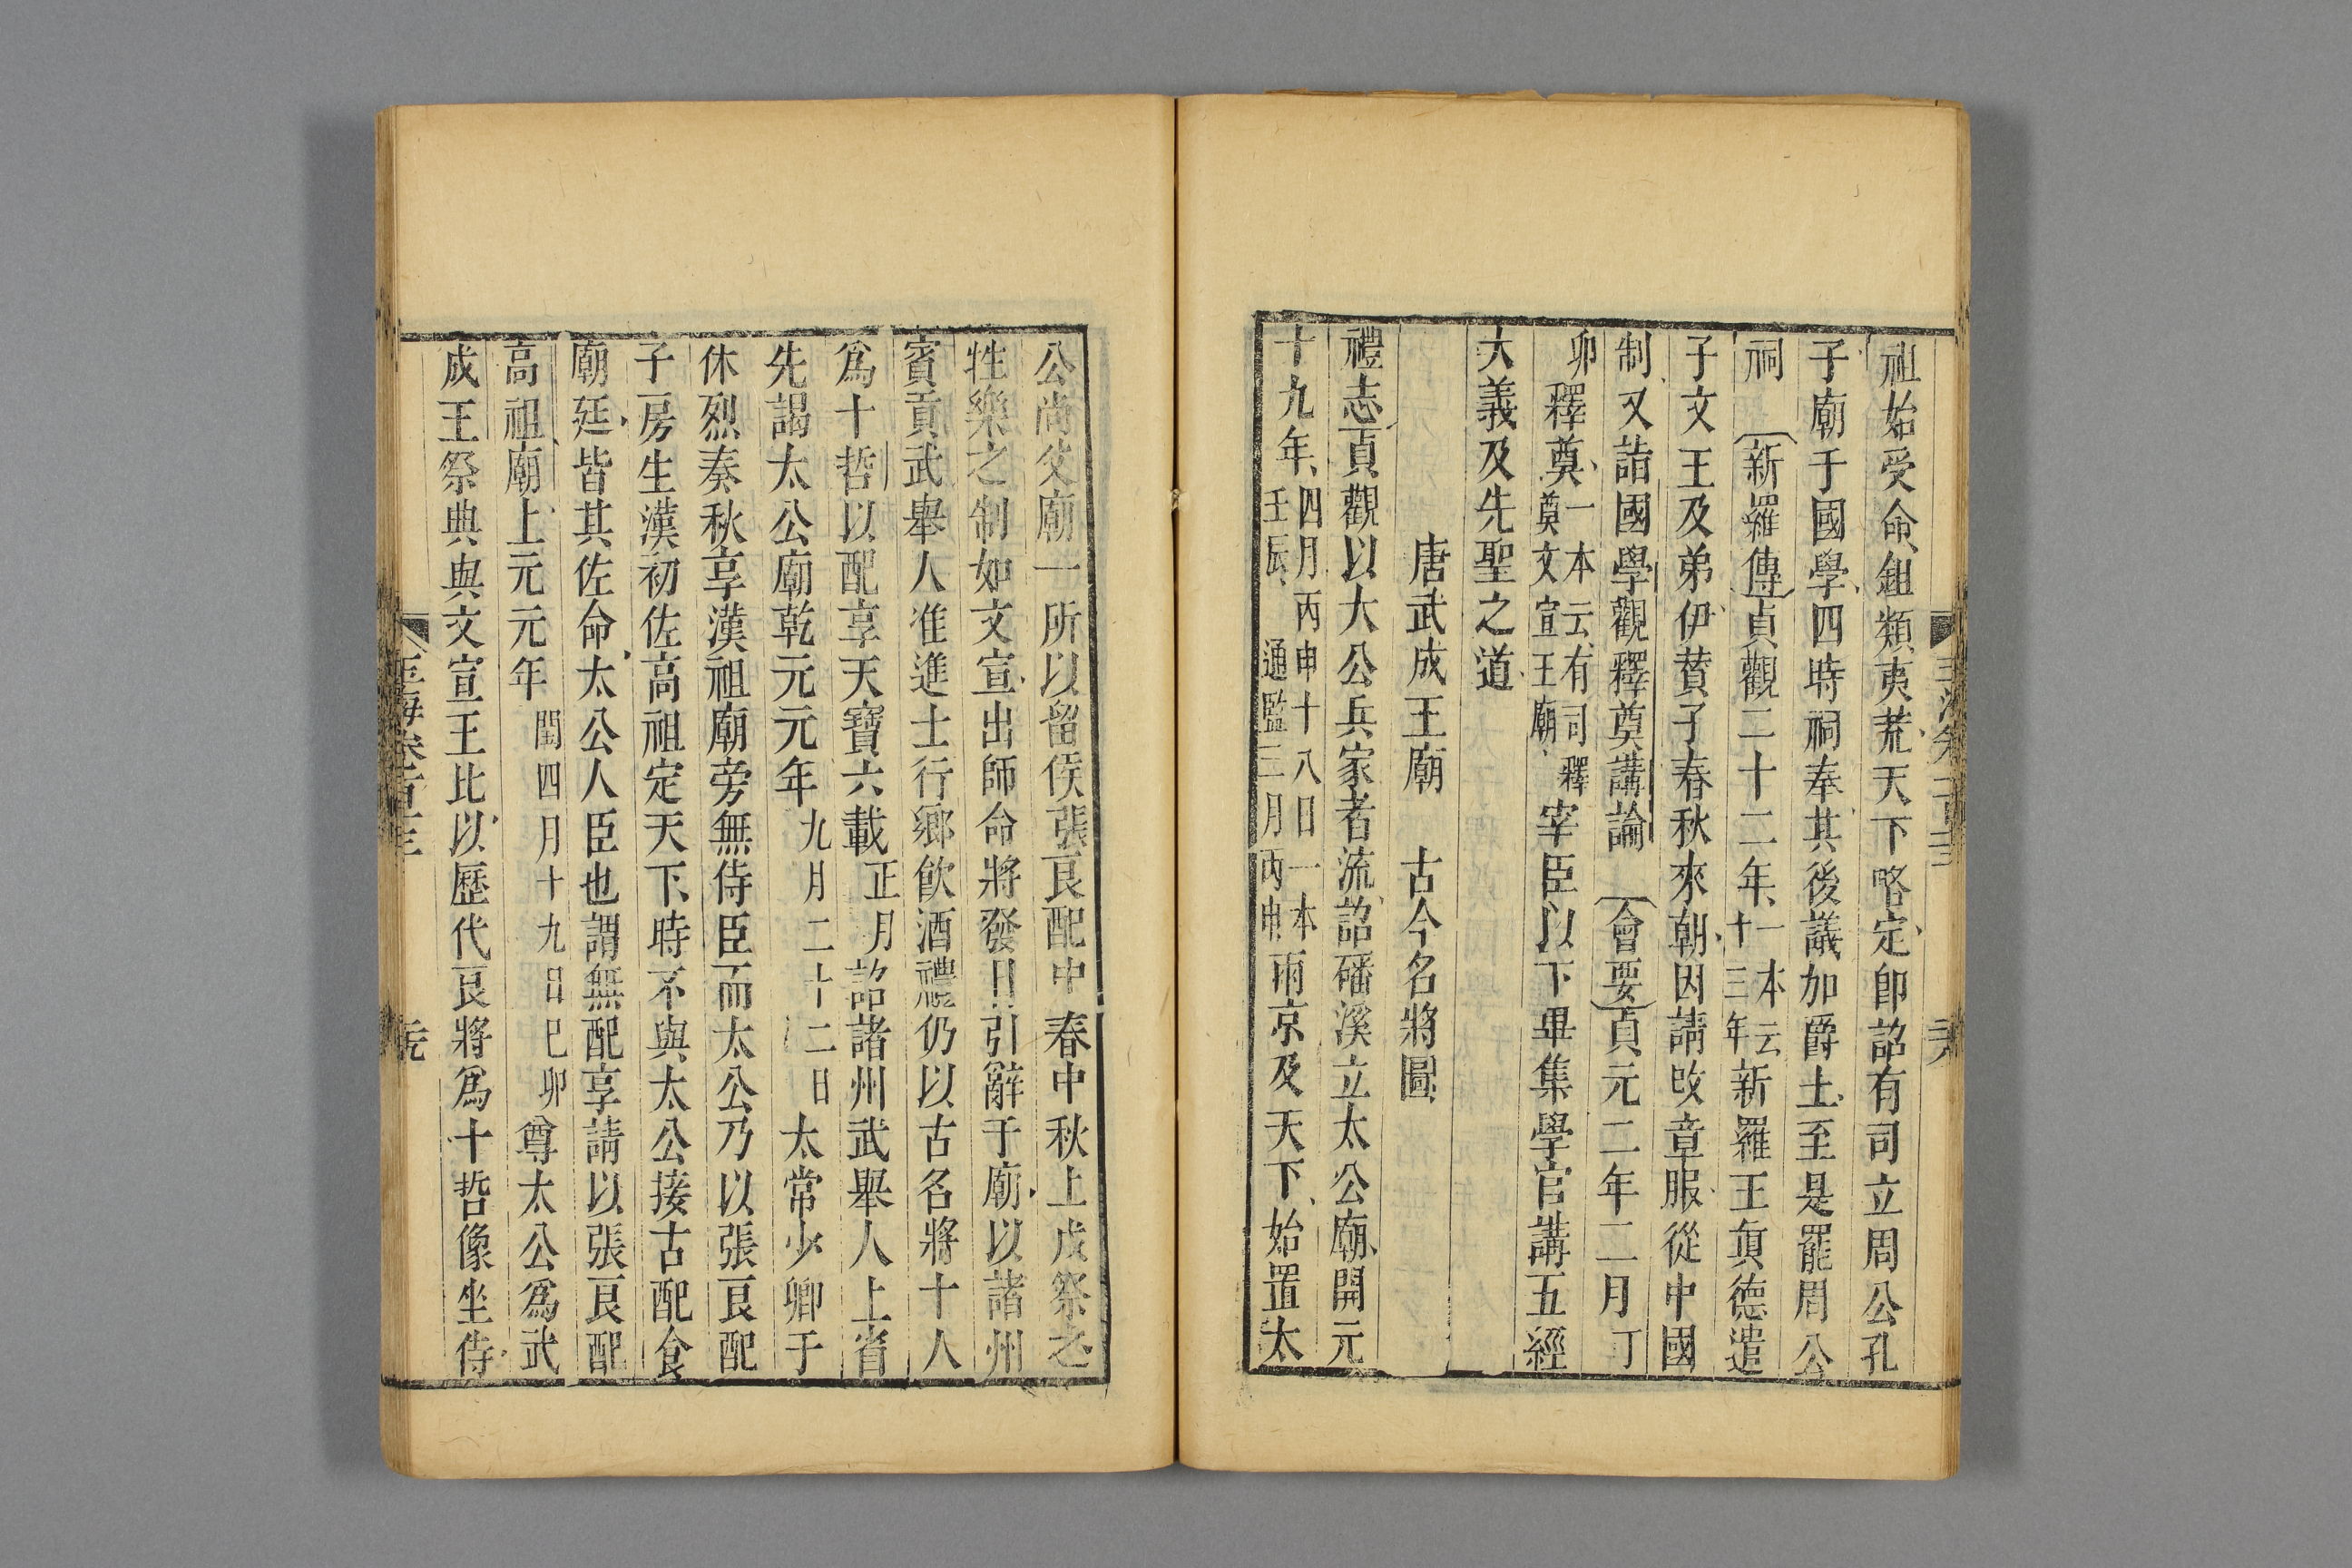 祖始受命鉏類夷荒天下略定卽詔有司立周公孔
子廟于國學四時祠奉其後議加爵土至是罷周公
祠 新羅傳貞觀二十二年一本云十三年新羅王眞德遣
子文王及弟伊贊子春秋來朝因請改章服從中國
制又詣國學觀釋奠講論 會要貞元二年二月丁
卯釋奠一本云有司釋奠文宣王廟宰臣以下畢集學官講五經
大義及先聖之道
唐武成王廟 古今名將圖
禮志貞觀以大公兵家者流詔磻溪立太公廟開元
十九年四月丙申十八日一本壬辰 通監三月丙申兩京及天下始置太
公尚父廟一所以留侯張良配中春中秋上戊祭之
牲樂之制如文宣出師命將發日引辭于廟以諸州
賓貢武舉人准進士行鄉飮酒禮仍以古名將十人
爲十哲以配享天寶六載正月詔諸州武舉人上省
先謁太公廟乾元元年九月二十二日太常少卿于
休烈奏秋享漢祖廟旁無侍臣而太公乃以張良配
子房生漢初佐高祖定天下時不與太公接古配食
廟廷皆其佐命太公人臣也謂無配享請以張良配
高祖廟上元元年閏四月十九日己卯尊太公爲武
成王祭典與文宣王比以歷代良將爲十哲像坐侍